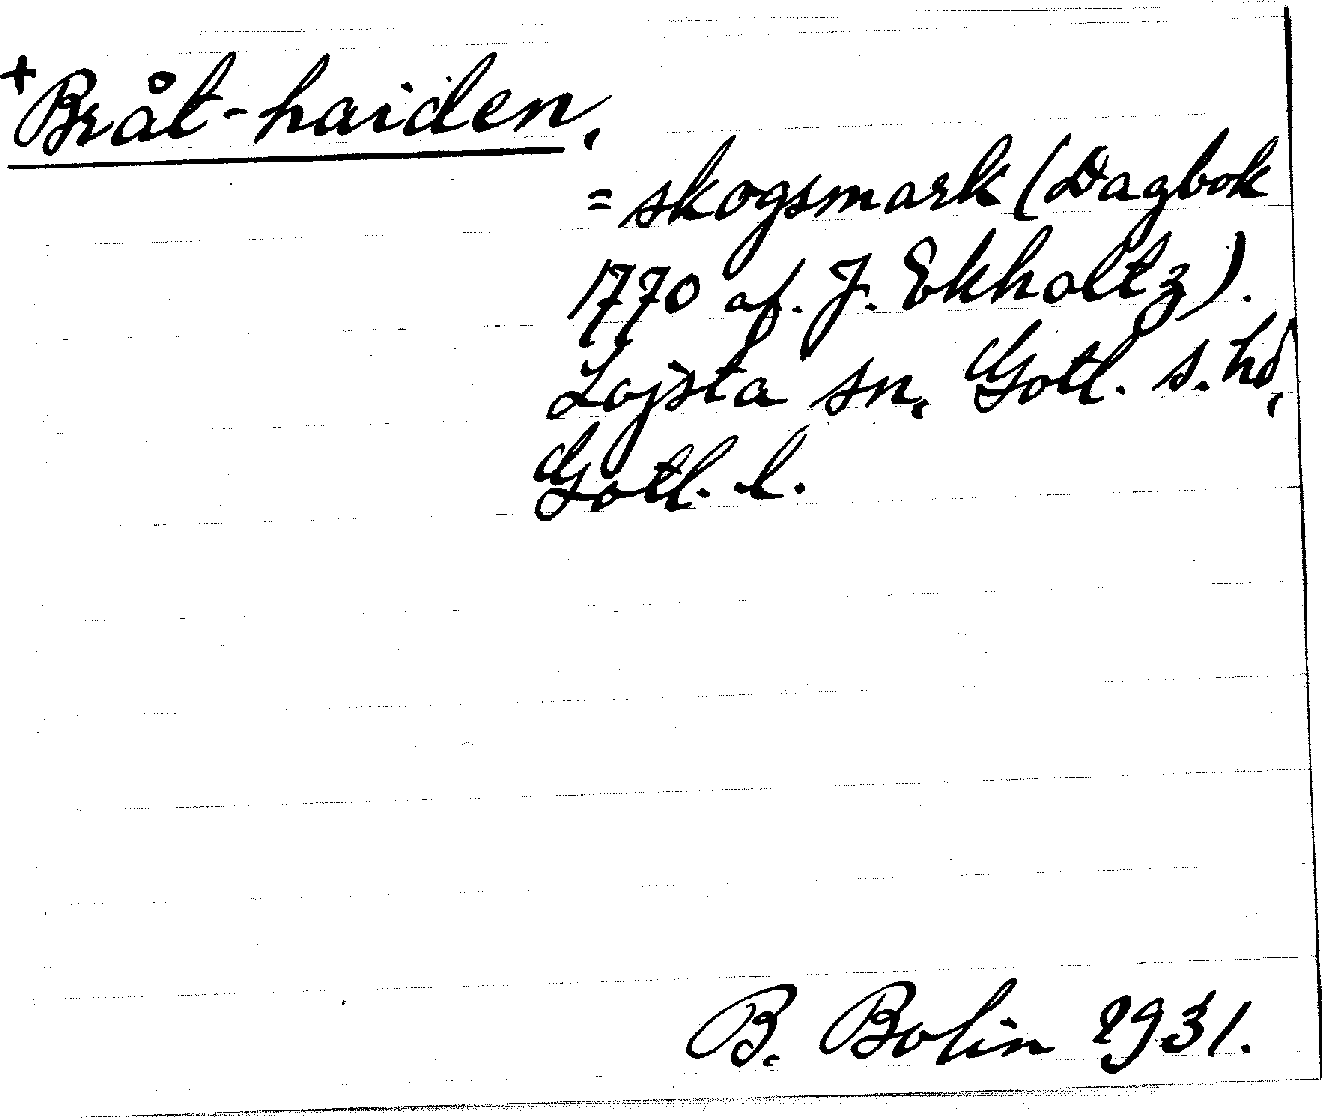 +Bråt-haiden,
= skogsmark (Dagbok
1770 af. J. Ekholtz).
Lojsta sn, Gotl. s. hd,
Gotl. l.
B. Bolin 1931.